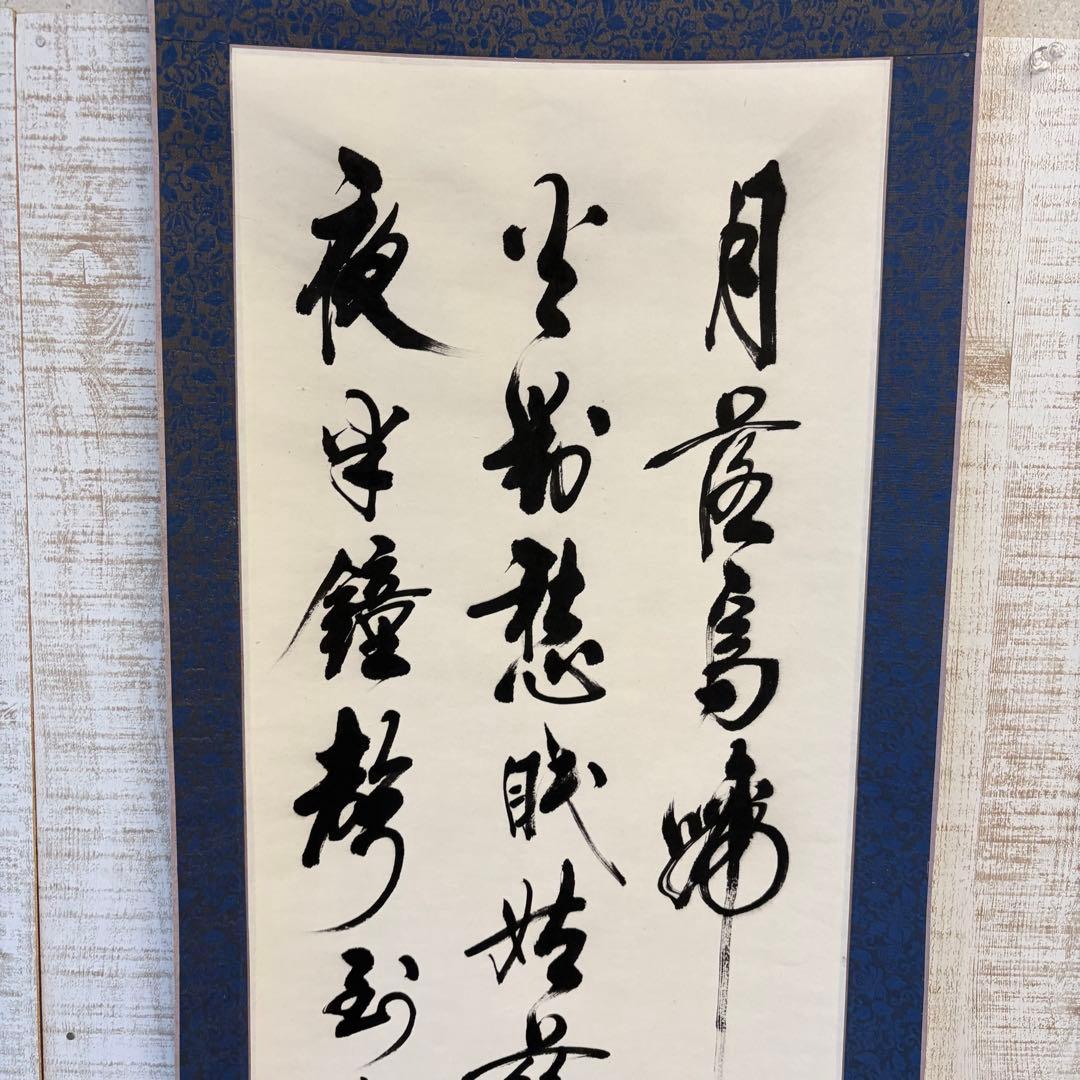 月落烏啼
火對愁眠姑
夜半鐘聲到